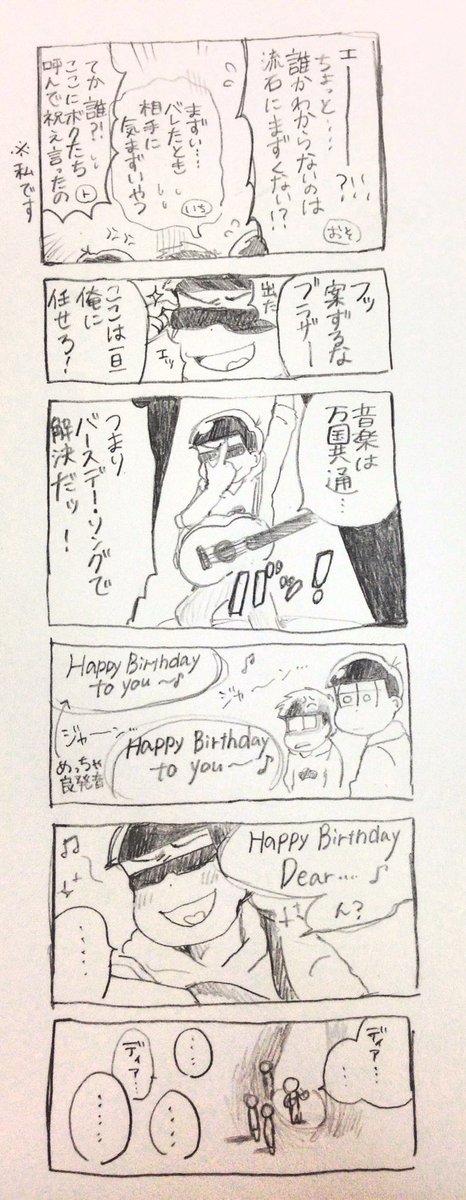 エーーー?!!!
ちょっと……
誰かわからないのは
流石にまずくない!?
おそ
まずい…
バレたとき
相手に
気まずいやつ
いち
てか誰?!
ここにボクたち
呼んで祝え言ったの
ト
※私です
フッ
案ずるな
ブラザー
出た
エッ
ここは一旦
俺に
任せろ!
音楽は
万国共通…
つまり
バースデー・ソングで
解決だッ!
Happy Birthday
to you~♪
ジャ〜ン…
ジャーン
めっちゃ
良発音
Happy Birthday
to you~♪
Happy Birthday
Dear....♪
ん?
……
ディア…
…
…
ディア…
……
……